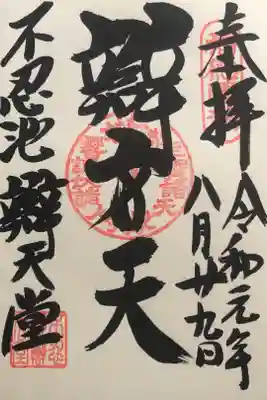 奉拝
令和元年
八月廿九日
辯才天
不忍池
辯天堂